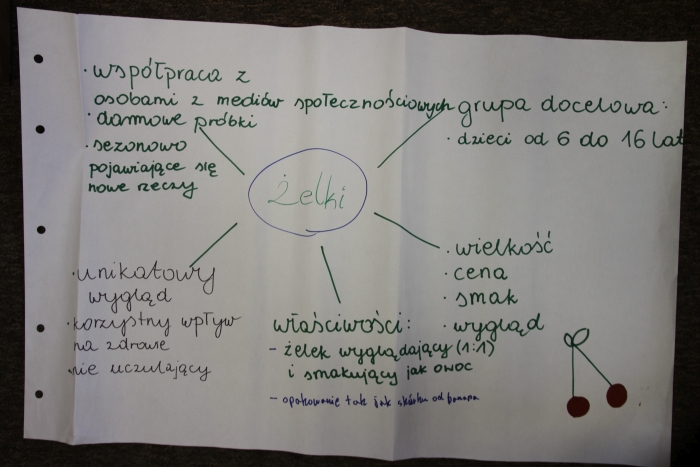 · współpraca z
osobami z mediów społecznościowych
· darmowe próbki
· sezonowo
pojawiające się
nowe rzeczy
grupa docelowa:
· dzieci od 6 do 16 lat
żelki
· unikatowy
wygląd
· korzystny wpływ
na zdrowie
· nie uczulający
właściwości:
- żelek wyglądający (1:1)
i smakujący jak owoc
- opakowanie tak jak skórka od banana
· wielkość
· cena
· smak
· wygląd